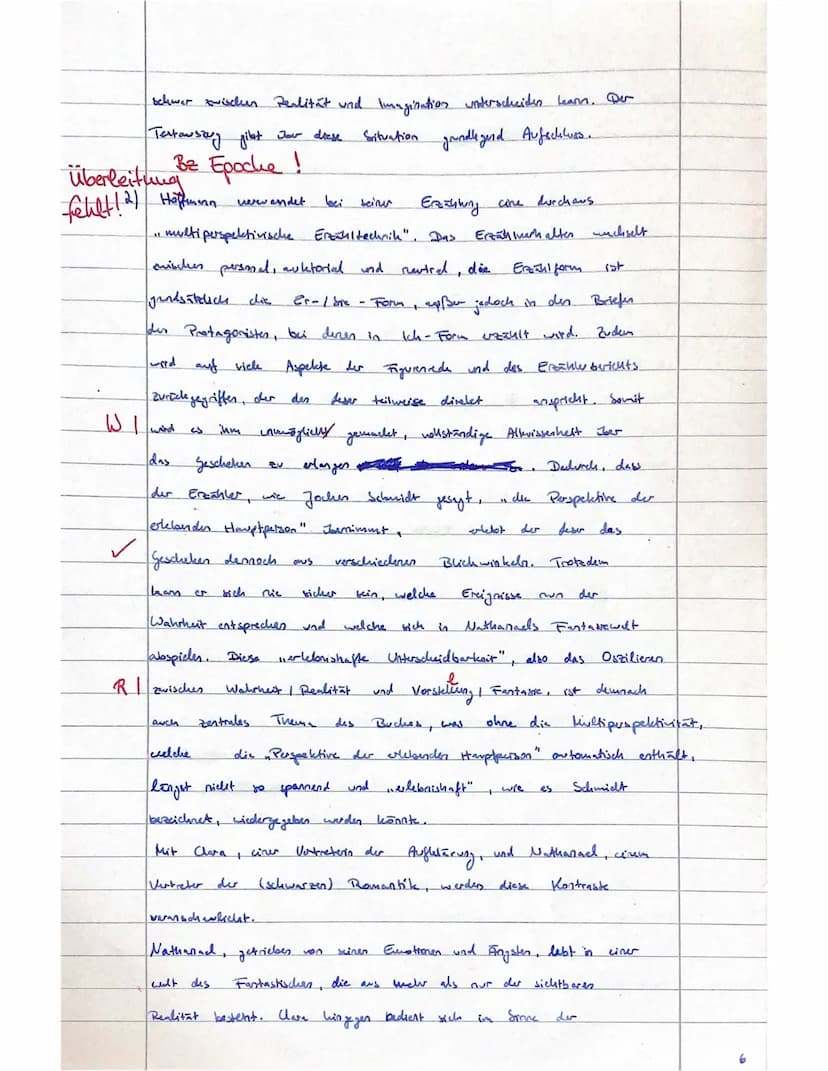 schwer zwischen Realität und Imagination unterscheiden kann. Der
Textauszug gibt über diese Situation grundlegend Aufschluss.
Bz Epoche !
Überleitung
fehlt!
2) Hoffmann verwendet bei seiner Erzählung eine durchaus
„multiperspektivische Erzähltechnik". Das Erzählverhalten wechselt
zwischen personal, auktorial und neutral, die Erzählform ist
grundsätzlich die Er-/Sie-Form, außer jedoch in den Briefen
des Protagonisten, bei denen in Ich-Form erzählt wird. Zudem
wird auf viele Aspekte der Figurenrede und des Erzählerberichts
zurückgegriffen, der den Leser teilweise direkt anspricht. Somit
W | wird es ihm unmöglich gemacht, vollständige Allwissenheit über
das Geschehen zu erlangen. Dadurch, dass
der Erzähler, wie Jochen Schmidt gesagt, „die Perspektive der
erlebenden Hauptperson" übernimmt, erlebt der Leser das
✓ Geschehen dennoch aus verschiedenen Blickwinkeln. Trotzdem
kann er sich nie sicher sein, welche Ereignisse nun der
Wahrheit entsprechen und welche sich in Nathanaels Fantasiewelt
abspielen. Diese „erlebnishafte Unterscheidbarkeit", also das Oszilieren
R | zwischen Wahrheit / Realität und Vorstellung / Fantasie, ist demnach
auch zentrales Thema des Buches, was ohne die Multiperspektivität,
welche die „Perspektive der erlebenden Hauptperson" automatisch enthält,
längst nicht so spannend und „erlebnishaft", wie es Schmidt
bezeichnet, wiedergegeben werden könnte.
Mit Clara, einer Vertreterin der Aufklärung, und Nathanael, einem
Vertreter der (schwarzen) Romantik, werden diese Kontraste
veranschaulicht.
Nathanael, getrieben von seinen Emotionen und Ängsten, lebt in einer
Welt des Fantastischen, die aus mehr als nur der sichtbaren
Realität besteht. Clara hingegen bedient sich im Sinne der
6